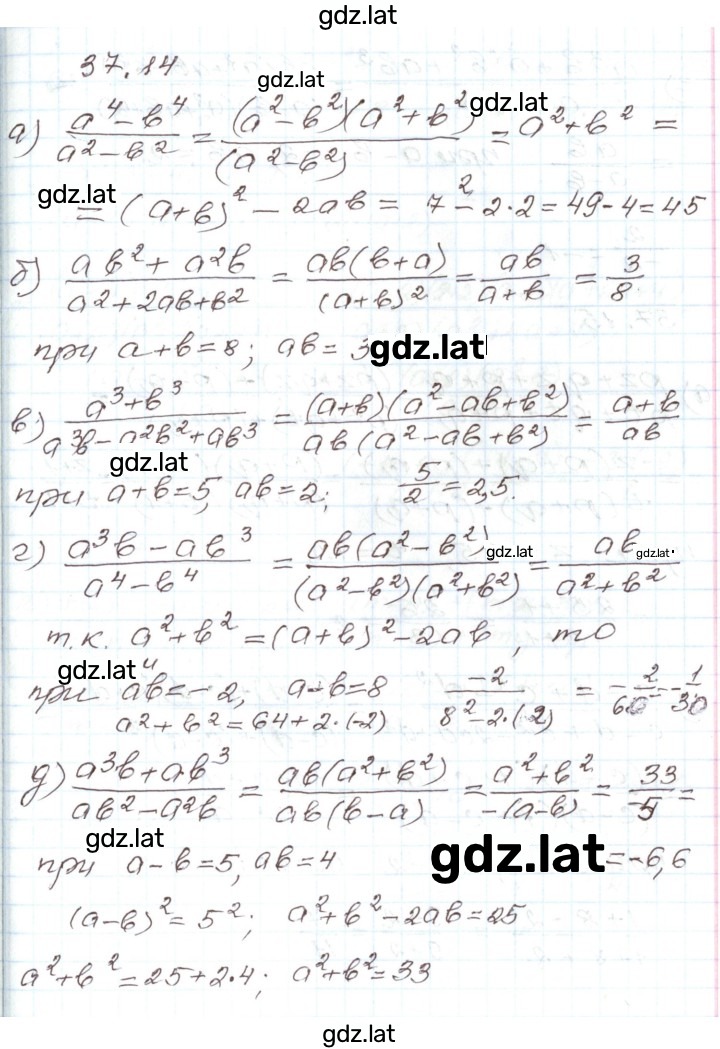 gdz.lat
37.14
gdz.lat
а) (a⁴-b⁴)/(a²-b²) = ((a²-b²)(a²+b²))/((a²-b²)) = a²+b² =
gdz.lat
gdz.lat
= (a+b)² - 2ab = 7² - 2·2 = 49-4 = 45
б) (ab²+a²b)/(a²+2ab+b²) = (ab(b+a))/((a+b)²) = ab/(a+b) = 3/8
при a+b=8; ab= 3
gdz.lat
в) (a³+b³)/(a³b-a²b²+ab³) = ((a+b)(a²-ab+b²))/(ab(a²-ab+b²)) = (a+b)/ab
gdz.lat
при a+b=5, ab=2; 5/2 = 2,5.
г) (a³b-ab³)/(a⁴-b⁴) = (ab(a²-b²))/((a²-b²)(a²+b²)) = ab/(a²+b²)
gdz.lat
gdz.lat
т.к. a²+b² = (a+b)²-2ab, то
gdz.lat
при ab=-2, a-b=8 -2/(8²-2·(2)) = -2/60 = -1/30
a²+b² = 64+2·(-2)
д) (a³b+ab³)/(ab²-a²b) = (ab(a²+b²))/(ab(b-a)) = (a²+b²)/(-(a-b)) = 33/-5 =
gdz.lat
при a-b=5, ab=4
gdz.lat
=-6,6
(a-b)² = 5²; a²+b²-2ab=25
a²+b² = 25+2·4; a²+b²=33
gdz.lat